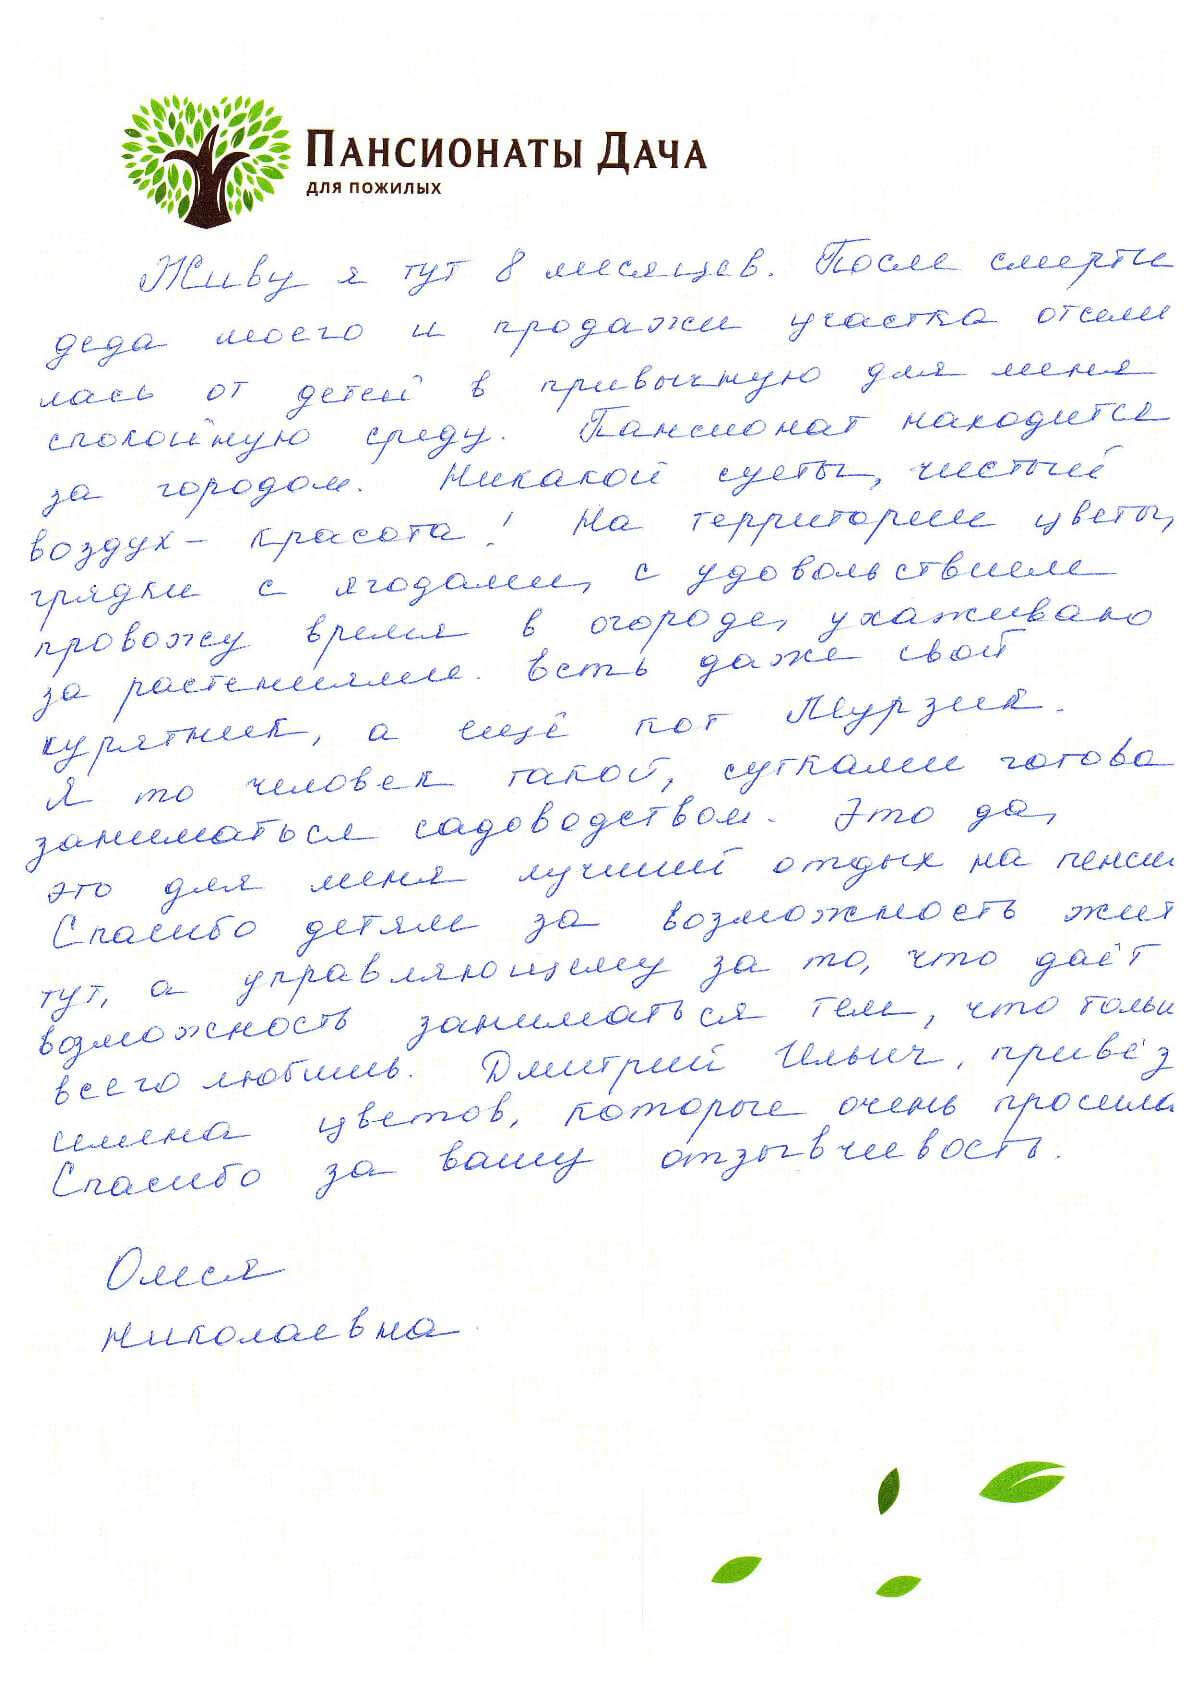 ПАНСИОНАТЫ ДАЧА
ДЛЯ ПОЖИЛЫХ
Живу я тут 8 месяцев. После смерти
деда моего и продажи участка отсели
лась от детей в привычную для меня
спокойную среду. Пансионат находится
за городом. Никакой суеты, чистый
воздух - красота! На территории цветы,
грядки с ягодами, с удовольствием
провожу время в огороде, ухаживаю
за растениями. Есть даже свой
курятник, а ещё кот Мурзик.
Я то человек такой, сутками готова
заниматься садоводством. Это да,
это для меня лучший отдых на пенси
Спасибо детям за возможность жит
тут, а управляющему за то, что даёт
возможность заниматься тем, что тольк
всего любишь. Дмитрий Ильич, привёз
семена цветов, которые очень просила
Спасибо за вашу отзывчивость.
Олеся
Николаевна